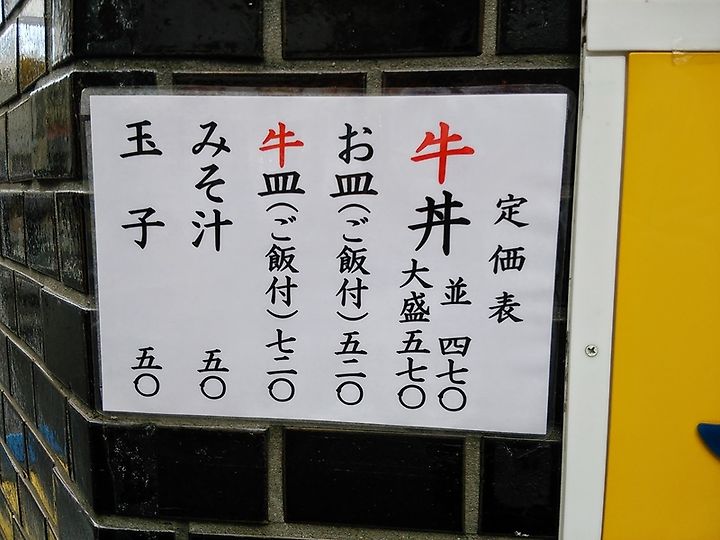 定価表
牛丼 並 四七〇
大盛 五七〇
お皿(ご飯付) 五二〇
牛皿(ご飯付) 七二〇
みそ汁 五〇
玉子 五〇